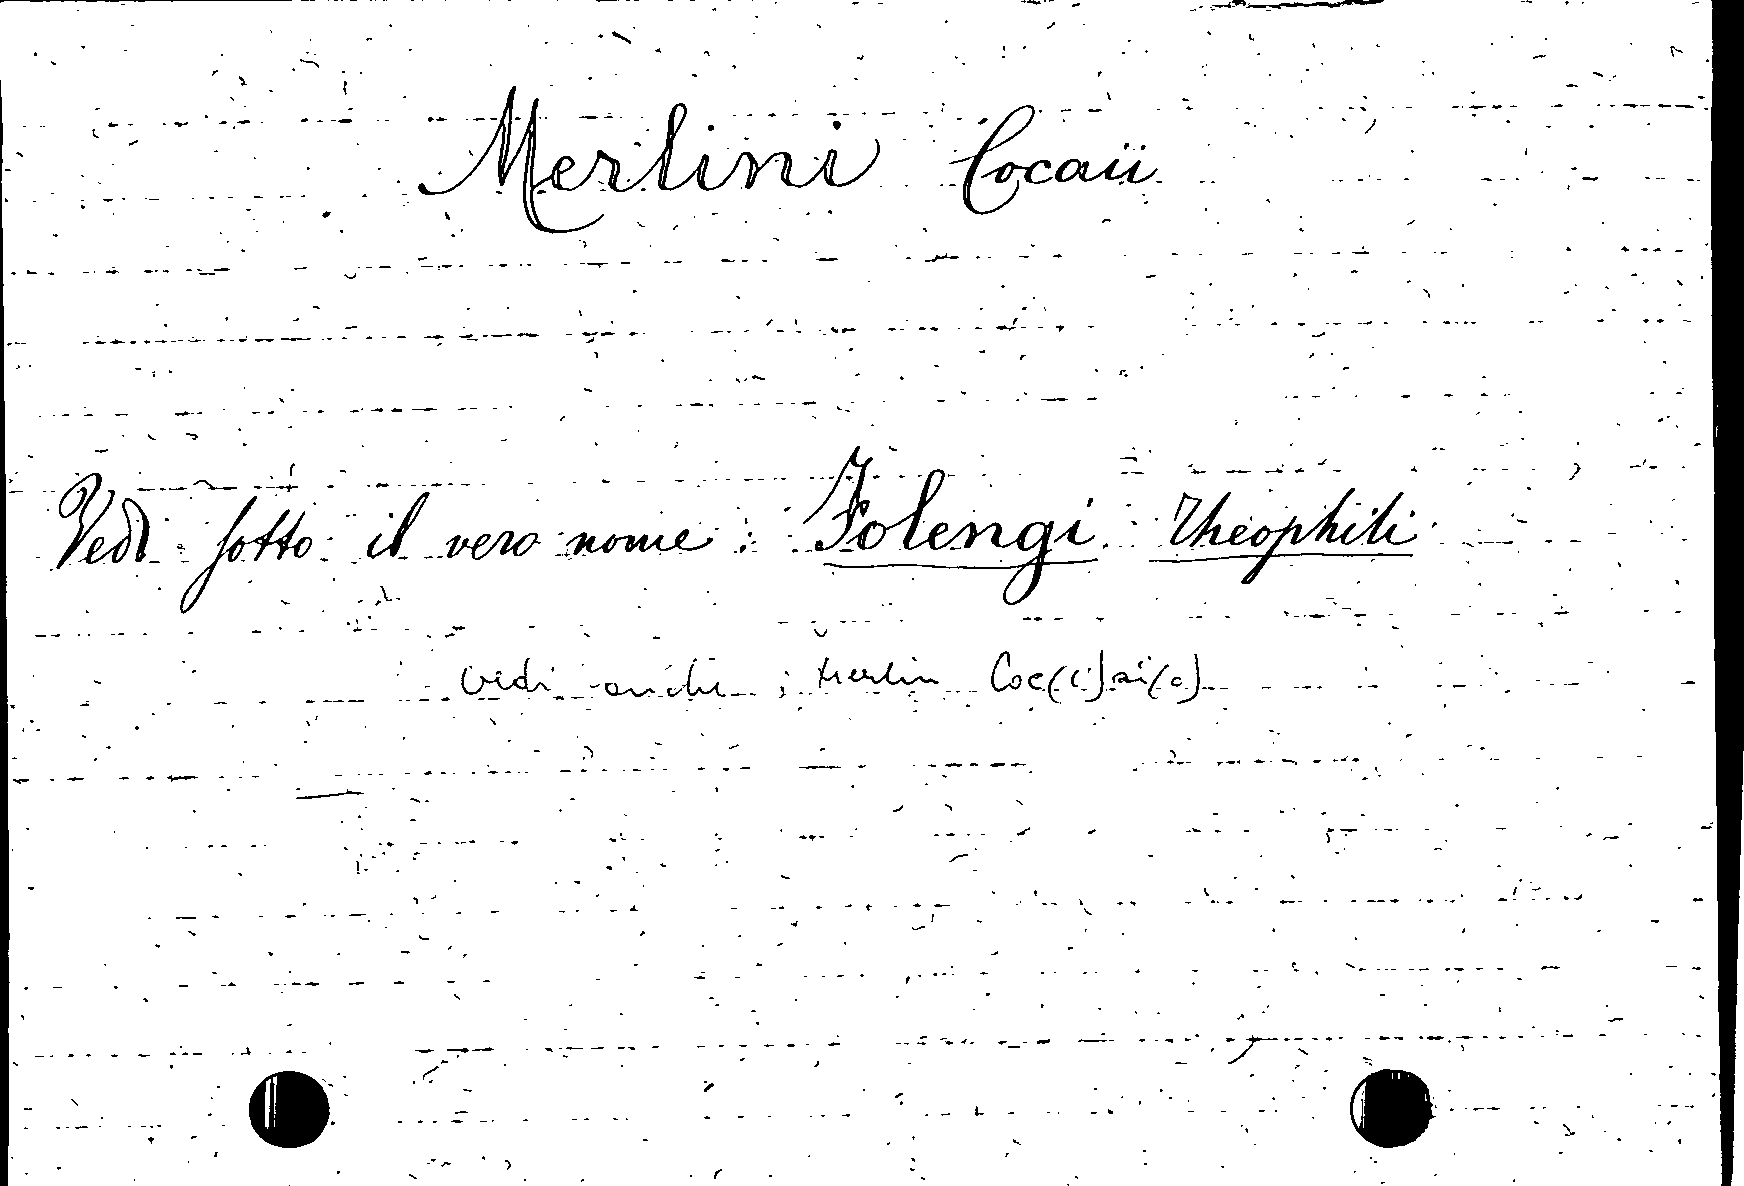 Merlini Cocaii
Vedi sotto il vero nome : Folengi Theophili
vedi anche : Merlin Coc(c)ai(o)